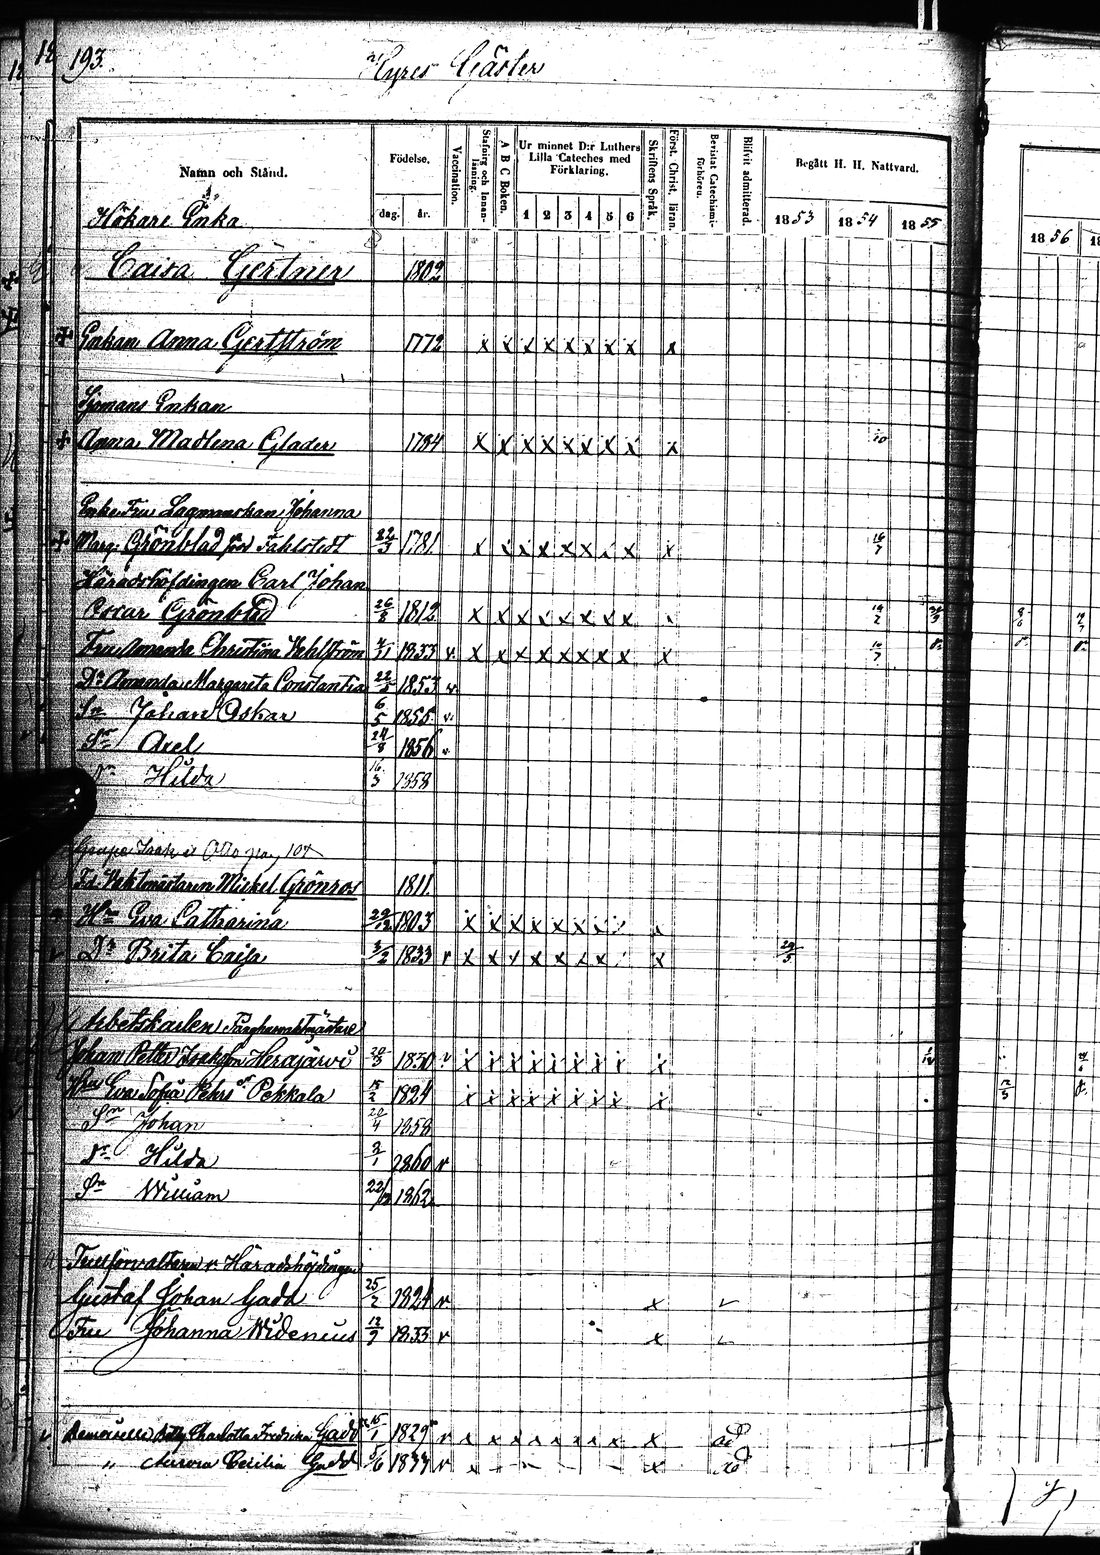 193.
Hyres Gäster
Namn och Stånd.
Födelse.
dag. år.
Vaccination.
Stafning och Innanläsning.
A B C Boken.
Ur minnet D:r Luthers Lilla Cateches med Förklaring.
1 2 3 4 5 6
Skriftens Språk.
Först. Christ. läran.
Bevistat Catechismiförhören.
Blifvit admitterad.
Begått H. H. Nattvard.
1853 1854 1855
1856
Hökare Enka
Caisa Gertner 1802
Enkan Anna Gertström 1772 x x x x x x x x x
Sjömans Enkan
Anna Madlena Glader 1784 x x x x x x x x x
Enke Fru Lagmanskan Johanna
Marg: Grönblad född Fahlstedt 22/3 1781 x x x x x x x x x 16/7
Häradshöfdingen Carl Johan
Oscar Grönblad 26/8 1812 x x x x x x x x
Fru Amanda Christina Vehlström 1833 v x x x x x x x x x
Dr Amanda Margareta Constantia 22/5 1853 v
Sn Johan Oskar 6/5 1855 v
Sn Axel 24/8 1856 v
Dr Hilda 16/3 1858
Fd. Vaktmästaren Mickel Grönros 1811
Hu Eva Catharina 29/12 1803 x x x x x x
Dr Brita Caisa 3/2 1833 v x x x x x x x x 29/5
Arbetskarlen
Johan Petter Isaksson Herajärvi 20/3 1830 v x x x x x x x x x
Hu Eva Sofia Pehrsdr Pekkala 15/2 1824 x x x x x x x x x
Sn Johan 20/4 1858
Dr Hilda 2/1 1860 v
Sn William 22/12 1862
Tullförvaltaren v Häradshöfdingen
Gustaf Johan Gadd 25/7 1824 v x
Fru Johanna Widenius 13/9 1833 v x
Demoiselle Betty Charlotta Fredrika Gadd 15/1 1829 v x x x x x x x x x ad
" Aurora Cecilia Gadd 5/6 1837 v x ad